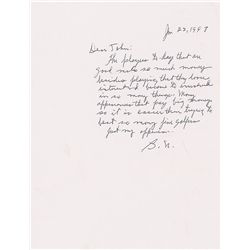 Jan 23, 1997
Dear John:
The players to day that are
good make so much money
besides playing, that they loose
interest & done to
in so many things. Many
appearances that pay big money
so it is easier than trying to
beat so many fine golfers
just my opinion.
B. N.